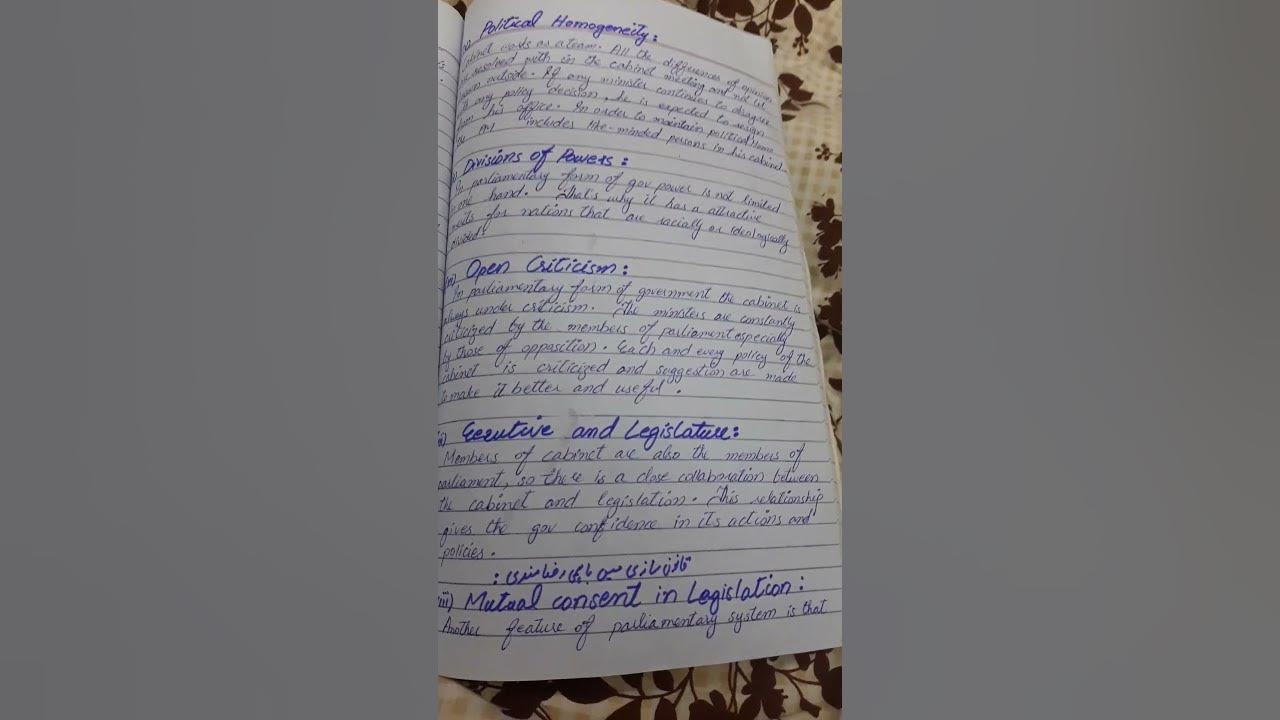 Political Homogeneity:
cabinet works as a team. All the differences of opinion
are resolved with in the cabinet meeting and not let
known outside. If any minister continues to disagree
any policy decision, he is expected to resign
from his office. In order to maintain political homo
the PM includes like-minded persons in his cabinet
Divisions of Powers:
In parliamentary form of gov power is not limited
one hand. That's why it has a attractive
merits for nations that are racially or ideologically
divided.
Open Criticism:
In parliamentary form of government the cabinet is
always under criticism. The ministers are constantly
criticized by the members of parliament especially
by those of opposition. Each and every policy of the
cabinet is criticized and suggestion are made
to make it better and useful.
Executive and Legislature:
Members of cabinet are also the members of
parliament, so there is a close collaboration between
the cabinet and legislation. This relationship
gives the gov confidence in its actions and
policies.
قانون سازی میں باہمی رضامندی:
iii) Mutual consent in Legislation:
Another feature of parliamentary system is that